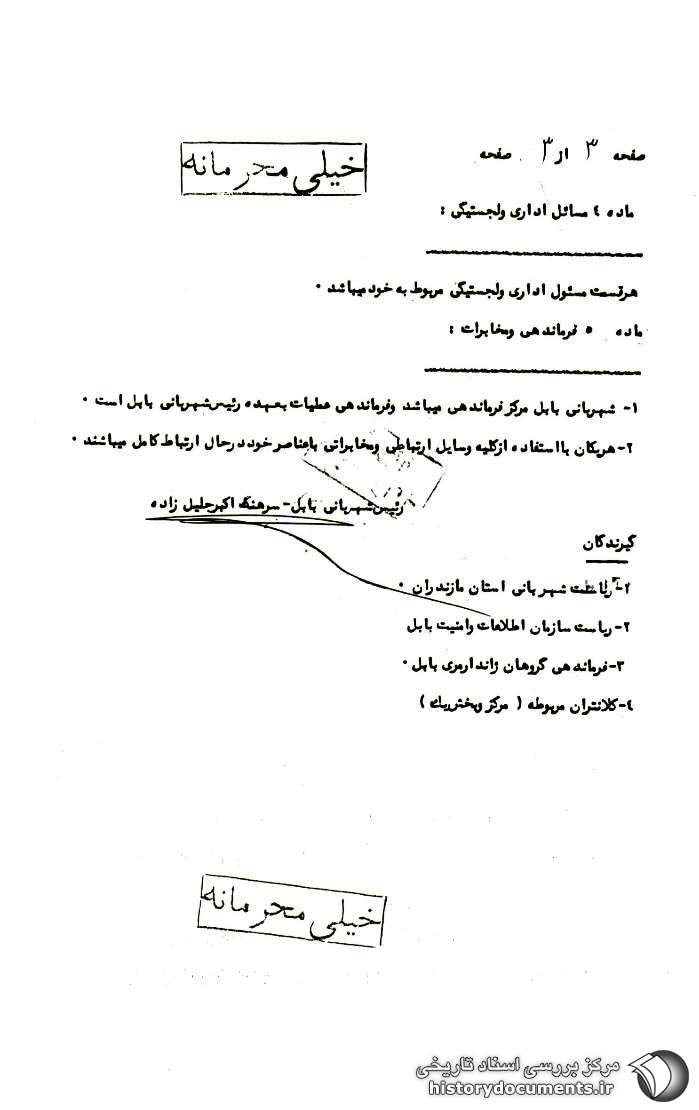 خیلی محرمانه
صفحه ۳ از ۳ صفحه
ماده ٤ مسائل اداری ولجستیکی :
هرقسمت مسئول اداری ولجستیکی مربوط به خود میباشد ۰
ماده ٥ فرماندهی ومخابرات :
۱- شهربانی بابل مرکز فرماندهی میباشد وفرماندهی عملیات بعهده رئیس شهربانی بابل است ۰
۲- هریکان با استفاده ازکلیه وسایل ارتباطی ومخابراتی باعناصر خود درحال ارتباط کامل میباشند ۰
رئیس شهربانی بابل- سرهنگ اکبر جلیل زاده
گیرندگان
۱- ریاست شهربانی استان مازندران ۰
۲- ریاست سازمان اطلاعات وامنیت بابل
۳- فرماندهی گروهان ژاندارمری بابل ۰
٤- کلانتران مربوطه ( مرکز وبخش یك )
خیلی محرمانه
مرکز بررسی اسناد تاریخی
historydocuments.ir